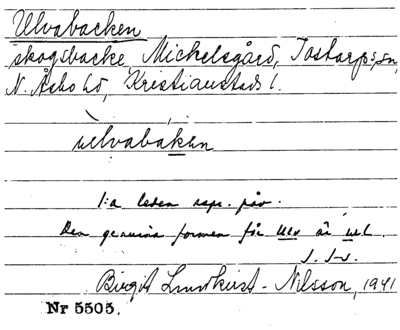 Ulvabacken
skogsbacke, Michelsgård, Tostarps sn,
N. Åsbo hd, Kristianstads l.
ulvabaken
1:a leden rspr. påv.
Den genuina formen för ulv är ul.
Birgit Lundkvist-Nilsson, 1941
Nr 5505.